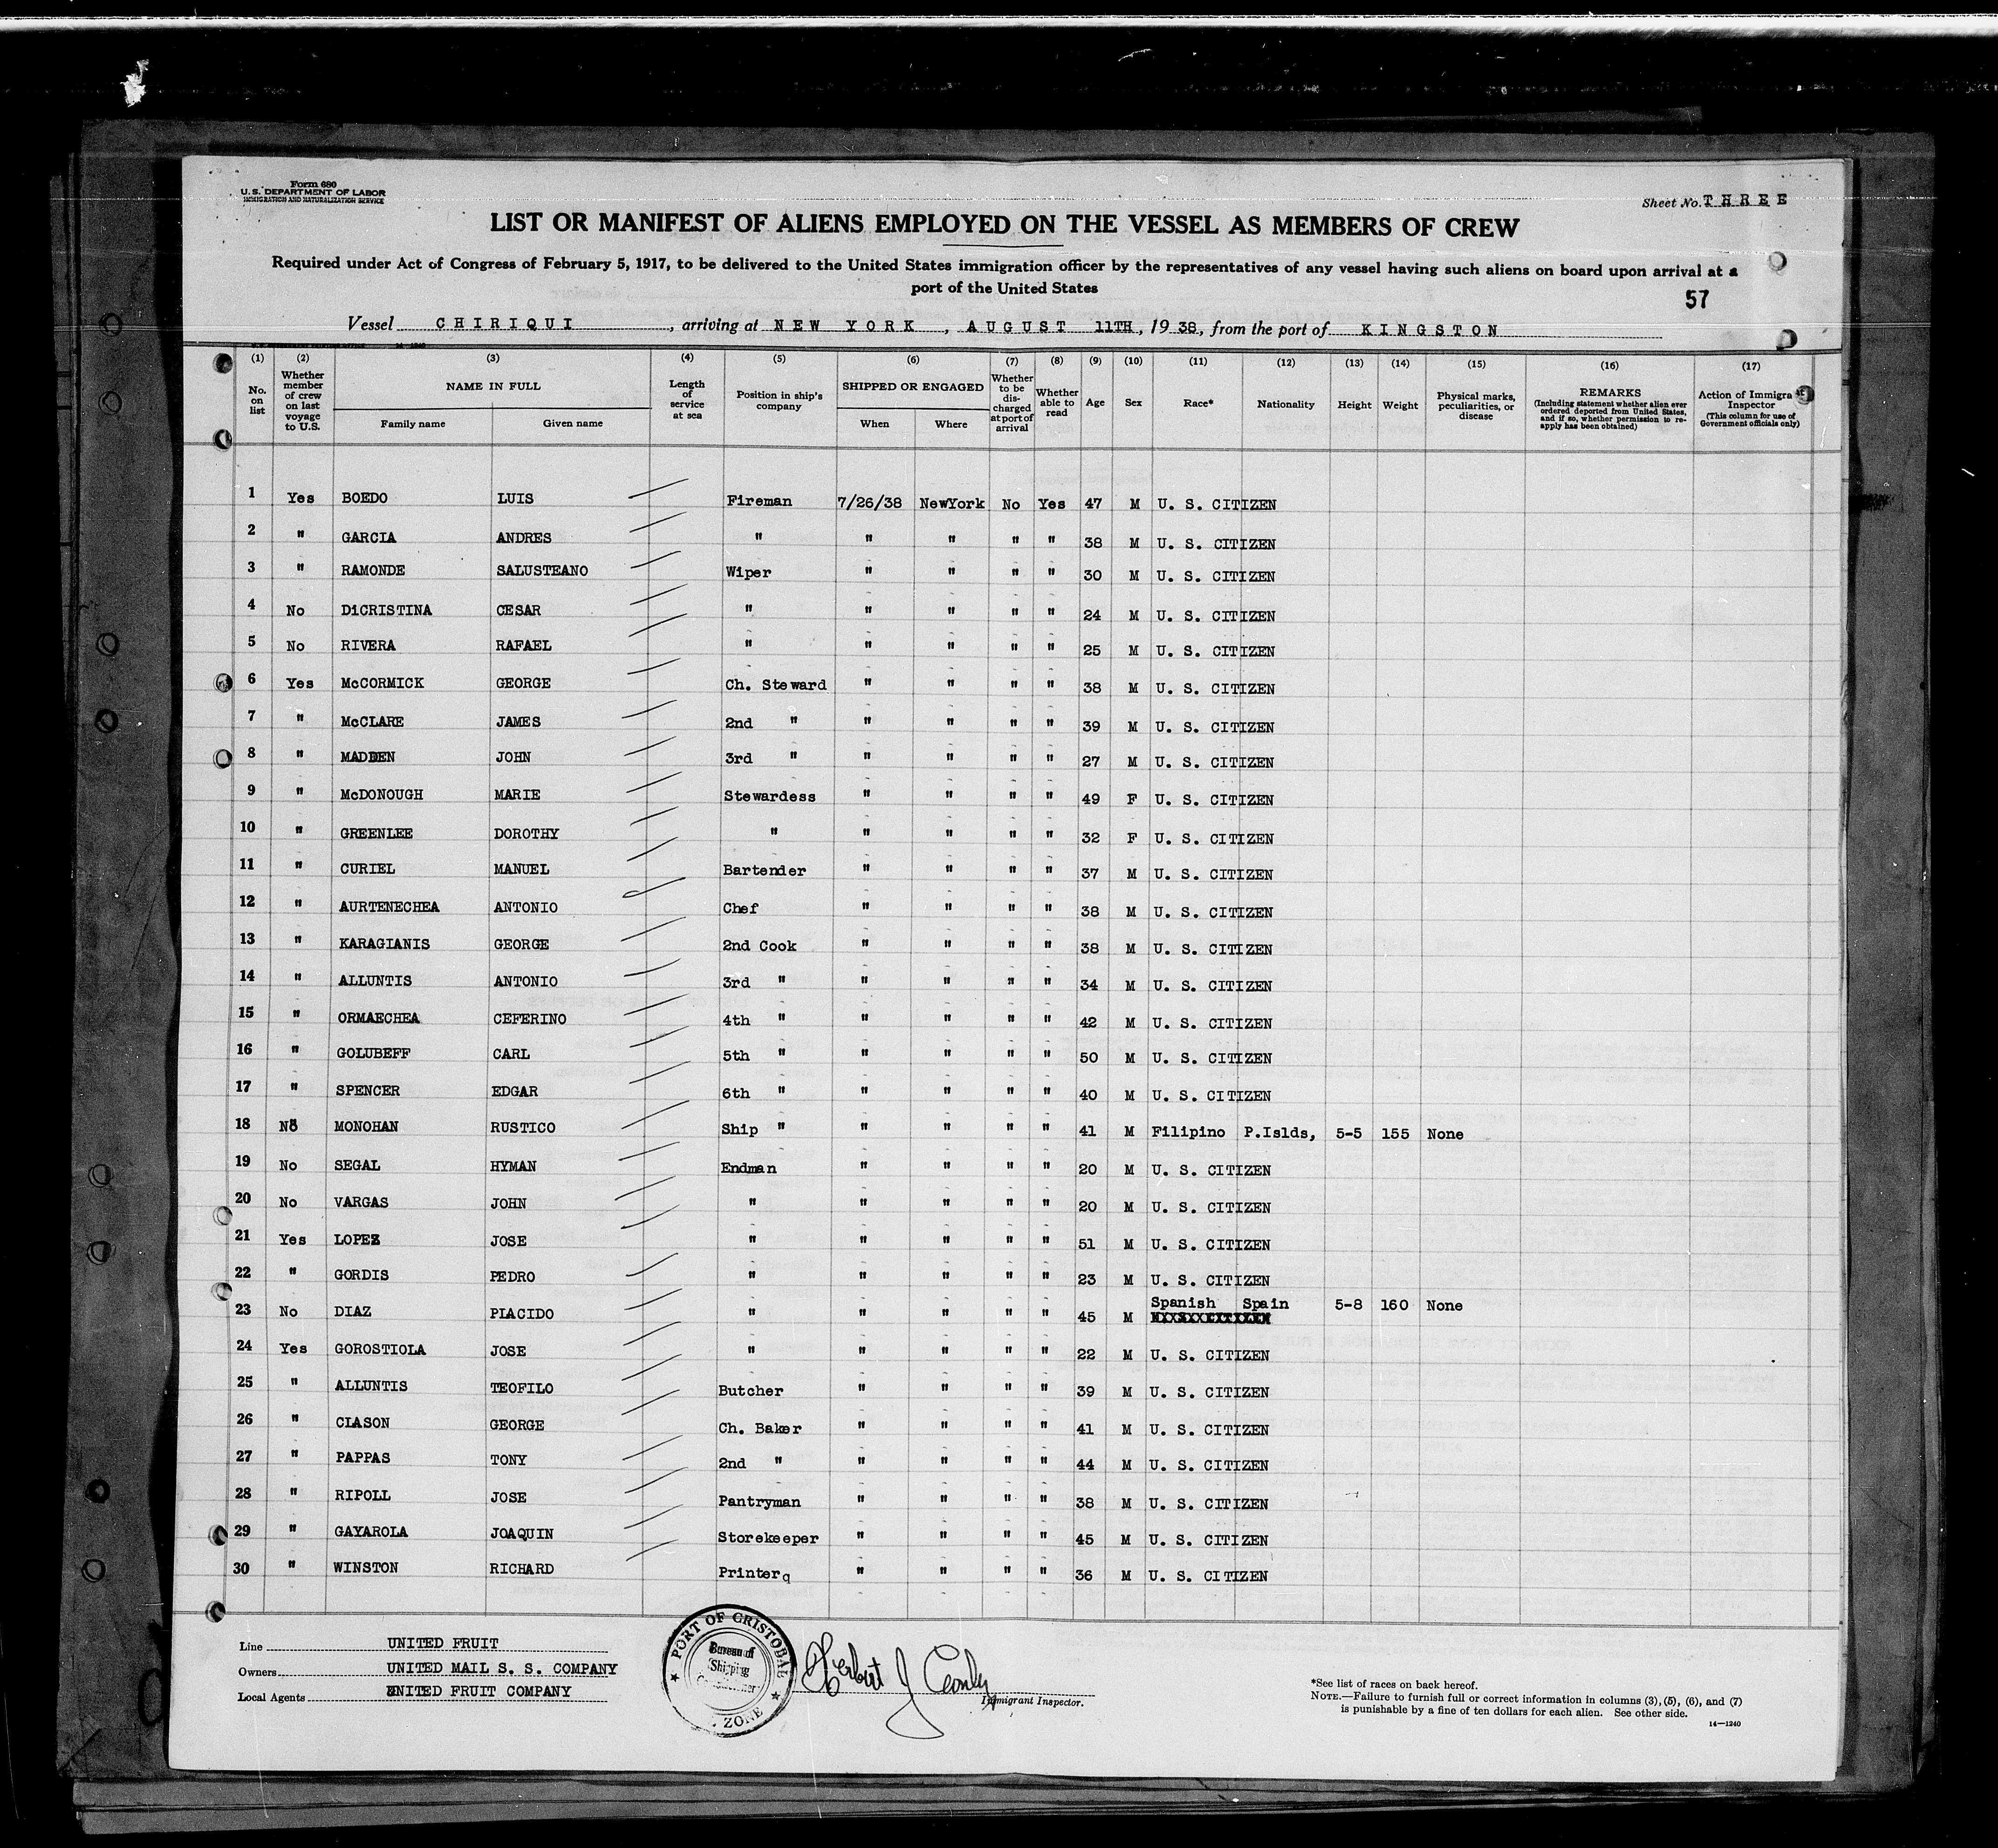 Form 680
U. S. DEPARTMENT OF LABOR
IMMIGRATION AND NATURALIZATION SERVICE
Sheet No. THREE
LIST OR MANIFEST OF ALIENS EMPLOYED ON THE VESSEL AS MEMBERS OF CREW
Required under Act of Congress of February 5, 1917, to be delivered to the United States immigration officer by the representatives of any vessel having such aliens on board upon arrival at a
port of the United States
57
Vessel CHIRIQUI, arriving at NEW YORK, AUGUST 11TH, 1938, from the port of KINGSTON
(1) (2) (3) (4) (5) (6) (7) (8) (9) (10) (11) (12) (13) (14) (15) (16) (17)
No. on list
Whether member of crew on last voyage to U.S.
NAME IN FULL
Family name
Given name
Length of service at sea
Position in ship's company
SHIPPED OR ENGAGED
When
Where
Whether to be discharged at port of arrival
Whether able to read
Age
Sex
Race*
Nationality
Height
Weight
Physical marks, peculiarities, or disease
REMARKS
(Including statement whether alien ever ordered deported from United States, and if so, whether permission to reapply has been obtained)
Action of Immigra
Inspector
(This column for use of Government officials only)
1 Yes BOEDO LUIS Fireman 7/26/38 NewYork No Yes 47 M U. S. CITIZEN
2 " GARCIA ANDRES " " " " " 38 M U. S. CITIZEN
3 " RAMONDE SALUSTEANO Wiper " " " " 30 M U. S. CITIZEN
4 No DiCRISTINA CESAR " " " " " 24 M U. S. CITIZEN
5 No RIVERA RAFAEL " " " " " 25 M U. S. CITIZEN
6 Yes McCORMICK GEORGE Ch. Steward " " " " 38 M U. S. CITIZEN
7 " McCLARE JAMES 2nd " " " " " 39 M U. S. CITIZEN
8 " MADDEN JOHN 3rd " " " " " 27 M U. S. CITIZEN
9 " McDONOUGH MARIE Stewardess " " " " 49 F U. S. CITIZEN
10 " GREENLEE DOROTHY " " " " " 32 F U. S. CITIZEN
11 " CURIEL MANUEL Bartender " " " " 37 M U. S. CITIZEN
12 " AURTENECHEA ANTONIO Chef " " " " 38 M U. S. CITIZEN
13 " KARAGIANIS GEORGE 2nd Cook " " " " 38 M U. S. CITIZEN
14 " ALLUNTIS ANTONIO 3rd " " " " " 34 M U. S. CITIZEN
15 " ORMAECHEA CEFERINO 4th " " " " " 42 M U. S. CITIZEN
16 " GOLUBEFF CARL 5th " " " " " 50 M U. S. CITIZEN
17 " SPENCER EDGAR 6th " " " " " 40 M U. S. CITIZEN
18 No MONOHAN RUSTICO Ship " " " " " 41 M Filipino P.Islds, 5-5 155 None
19 No SEGAL HYMAN Endman " " " " 20 M U. S. CITIZEN
20 No VARGAS JOHN " " " " " 20 M U. S. CITIZEN
21 Yes LOPEZ JOSE " " " " " 51 M U. S. CITIZEN
22 " GORDIS PEDRO " " " " " 23 M U. S. CITIZEN
23 No DIAZ PIACIDO " " " " " 45 M Spanish Spain 5-8 160 None
24 Yes GOROSTIOLA JOSE " " " " " 22 M U. S. CITIZEN
25 " ALLUNTIS TEOFILO Butcher " " " " 39 M U. S. CITIZEN
26 " CIASON GEORGE Ch. Baker " " " " 41 M U. S. CITIZEN
27 " PAPPAS TONY 2nd " " " " " 44 M U. S. CITIZEN
28 " RIPOLL JOSE Pantryman " " " " 38 M U. S. CITIZEN
29 " GAYAROLA JOAQUIN Storekeeper " " " " 45 M U. S. CITIZEN
30 " WINSTON RICHARD Printerq " " " " 36 M U. S. CITIZEN
Line UNITED FRUIT
Owners UNITED MAIL S. S. COMPANY
Local Agents UNITED FRUIT COMPANY
PORT OF CRISTOBAL
Bureau of
Shipping
ZONE
Herbert J
Immigrant Inspector.
*See list of races on back hereof.
NOTE.—Failure to furnish full or correct information in columns (3), (5), (6), and (7)
is punishable by a fine of ten dollars for each alien. See other side.
14—1240